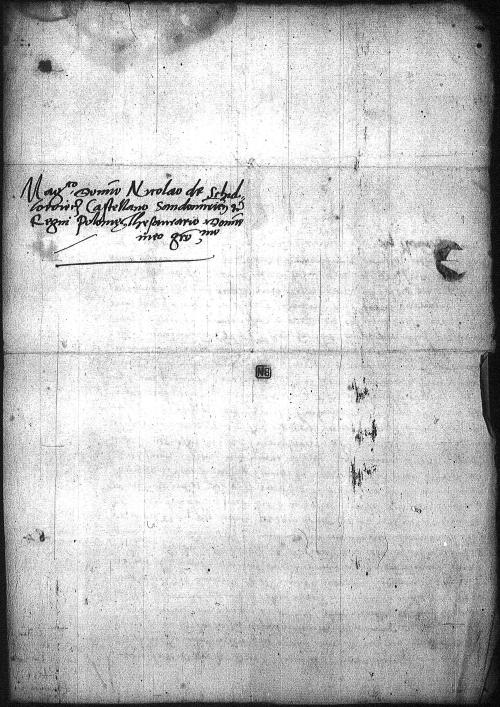 Mag.co Domino Nicolao de Schid-
lowiecz Castellano Sandomirien ac
Regni Polonie Thesaurario Domino
meo gr.mo
NB